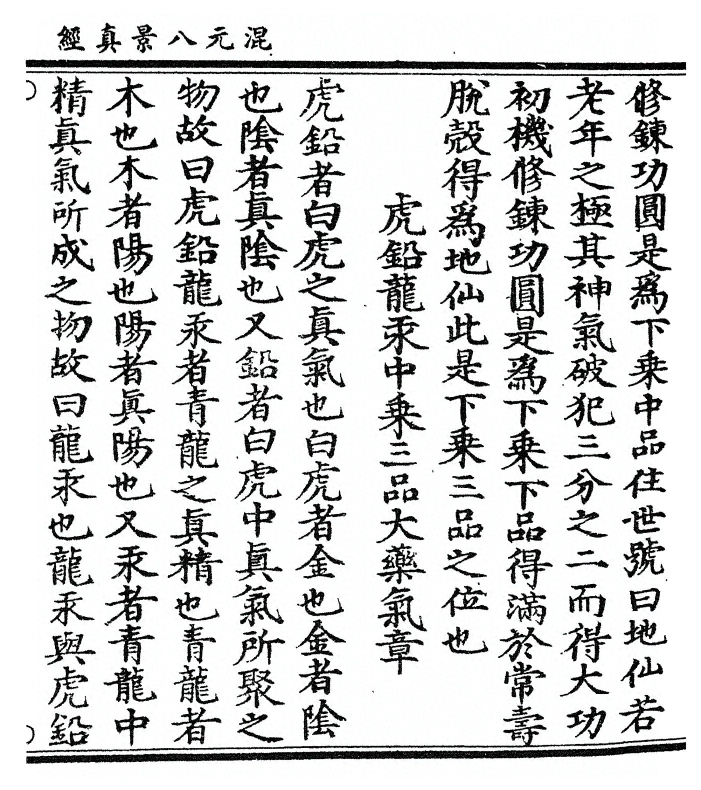 混元八景真經
修鍊功圓是爲下乗中品住世號曰地仙若
老年之極其神氣破犯三分之二而得大功
初機修鍊功圓是爲下乗下品得滿於常壽
脫殼得爲地仙此是下乗三品之位也
虎鉛龍汞中乗三品大藥氣章
虎鉛者白虎之眞氣也白虎者金也金者陰
也陰者眞陰也又鉛者白虎中眞氣所聚之
物故曰虎鉛龍汞者青龍之眞精也青龍者
木也木者陽也陽者眞陽也又汞者青龍中
精眞氣所成之物故曰龍汞也龍汞與虎鉛